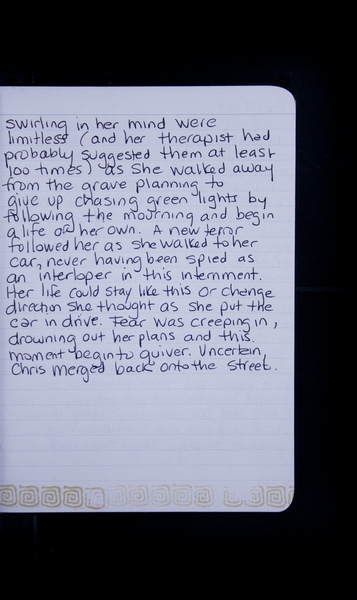 swirling in her mind were
limitless (and her therapist had
probably suggested them at least
100 times) as she walked away
from the grave planning to
give up chasing green lights by
following the mourning and begin
a life of her own. A new terror
followed her as she walked to her
car, never having been spied as
an interloper in this internment.
Her life could stay like this or change
direction she thought as she put the
car in drive. Fear was creeping in,
drowning out her plans and this
moment begin to quiver. Uncertain,
Chris merged back onto the street.